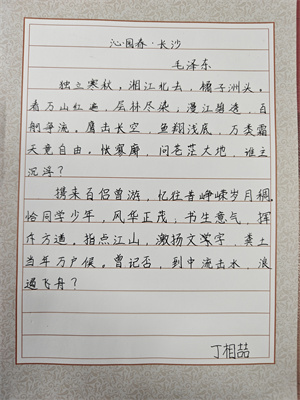 沁园春·长沙
毛泽东
独立寒秋，湘江北去，橘子洲头。
看万山红遍，层林尽染；漫江碧透，百
舸争流。鹰击长空，鱼翔浅底，万类霜
天竞自由。怅寥廓，问苍茫大地，谁主
沉浮？
携来百侣曾游，忆往昔峥嵘岁月稠。
恰同学少年，风华正茂；书生意气，挥
斥方遒。指点江山，激扬文字，粪土
当年万户侯。曾记否，到中流击水，浪
遏飞舟？
丁相喆